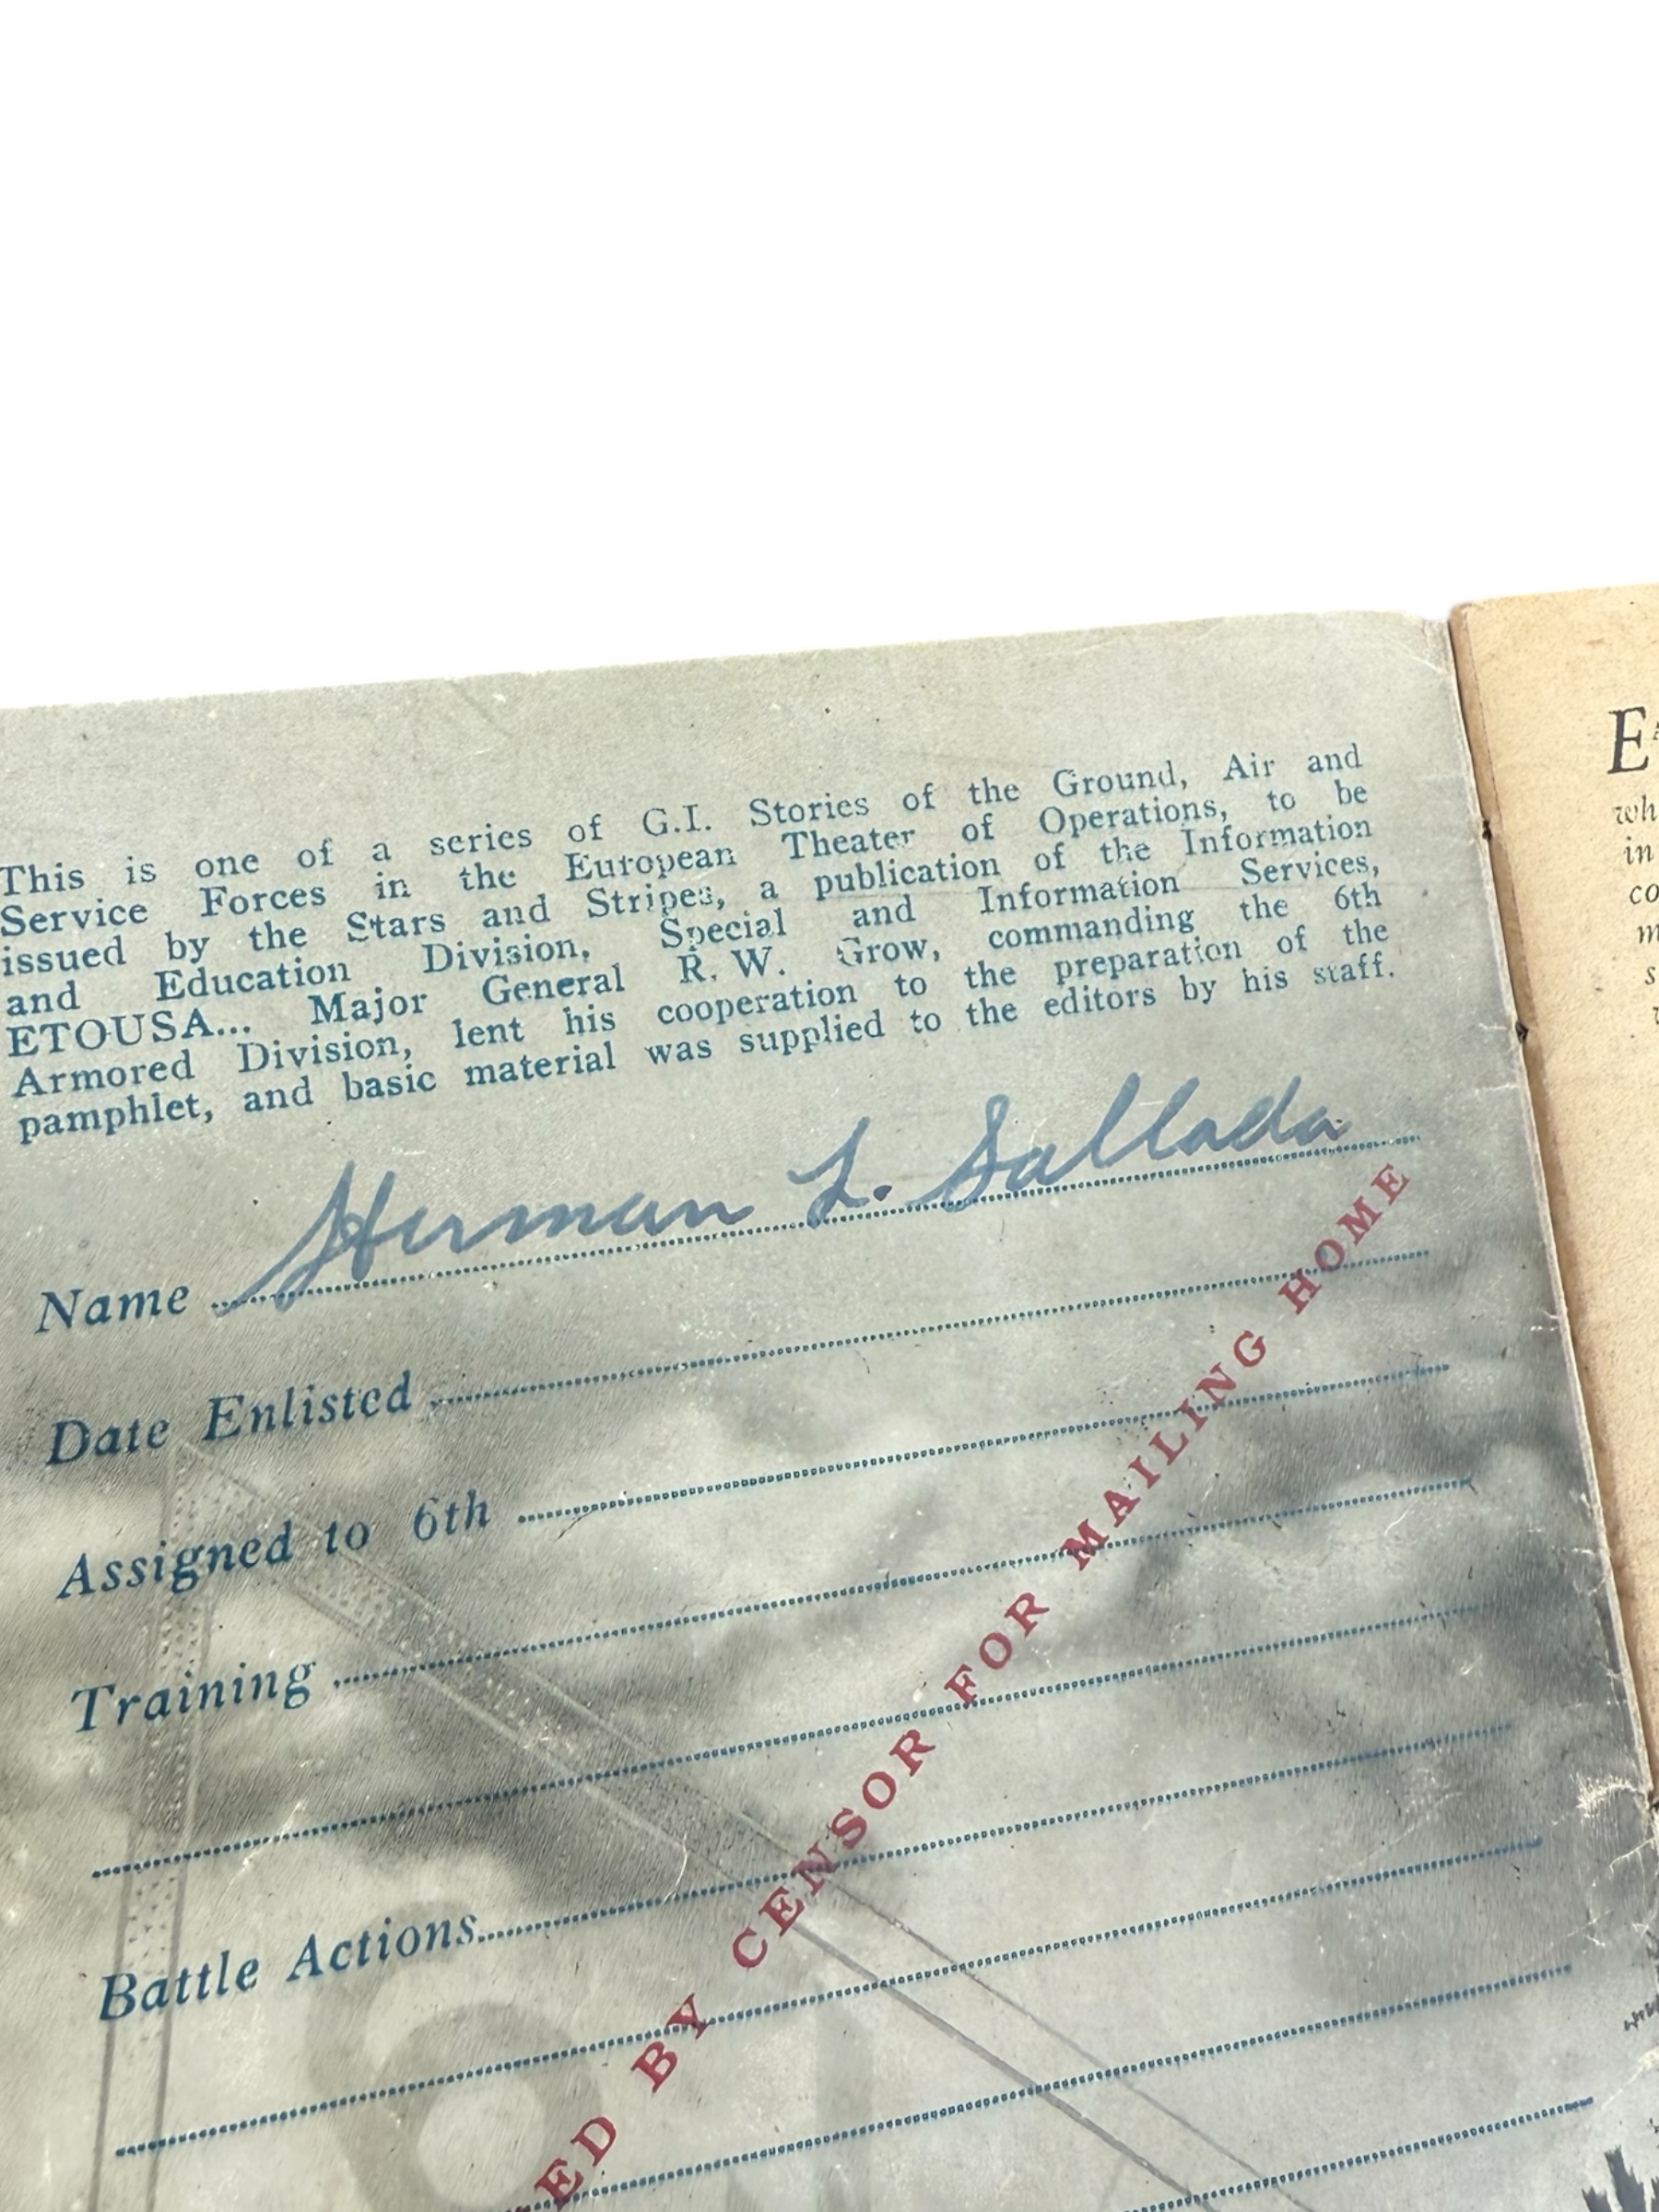 This is one of a series of G.I. Stories of the Ground, Air and
Service Forces in the European Theater of Operations, to be
issued by the Stars and Stripes, a publication of the Information
and Education Division, Special and Information Services,
ETOUSA... Major General R. W. Grow, commanding the 6th
Armored Division, lent his cooperation to the preparation of the
pamphlet, and basic material was supplied to the editors by his staff.
Name Herman L. Sallada
Date Enlisted
Assigned to 6th
Training
Battle Actions
ED BY CENSOR FOR MAILING HOME
E
wh
in
co
m
s